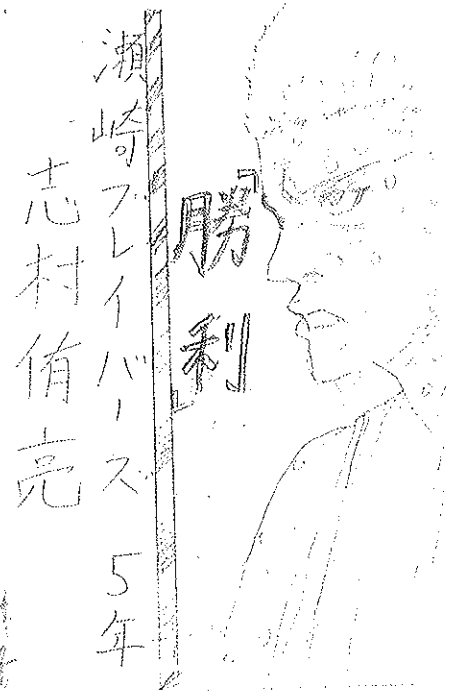 『勝利』
瀬崎ブレイバーズ 5年
志村侑亮